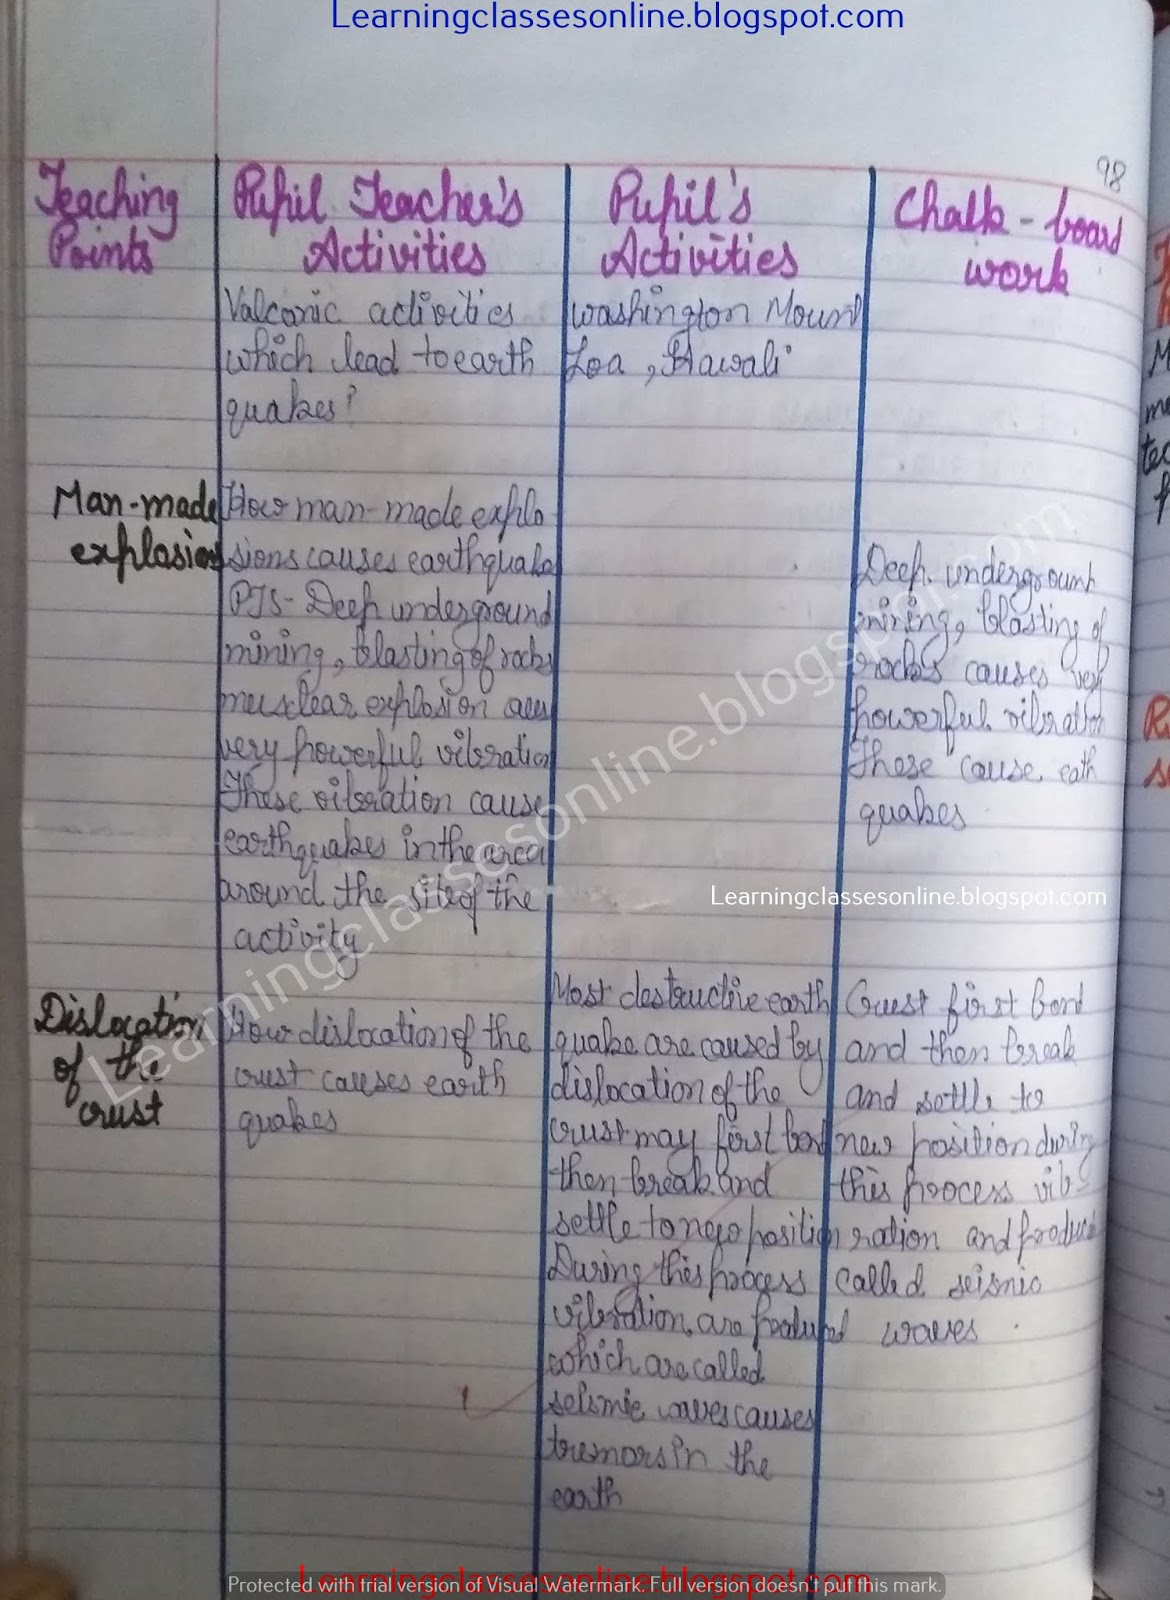 Learningclassesonline.blogspot.com
98
Teaching Points
Pupil Teacher's Activities
Pupil's Activities
Chalk-board work
Valconic activities
which lead to earth
quakes?
washington Mount
Loa, Hawali
Man-made
explosion
How man-made explo
sions causes earthquake
PTS- Deep underground
mining, blasting of rocks
explosion
very powerful vibration
These vibration cause
earthquakes in the area
around the site of the
activity
Deep underground
mining, blasting of
rocks causes very
powerful vibration
These cause eath
quakes
Learningclassesonline.blogspot.com
Learningclassesonline.blogspot.com
Dislocation
of the
crust
How dislocation of the
crust causes earth
quakes
Most destructive earth
quake are caused by
dislocation of the
crust may first bend
then break and
settle to position
During this process
vibration are produced
which are called
seismic waves causes
tremors in the
earth
first bend
and then break
and settle to
new position during
this process vib-
ration and produced
called seismic
waves
Learningclassesonline.blogspot.com
Protected with trial version of Visual Watermark. Full version doesn't put this mark.